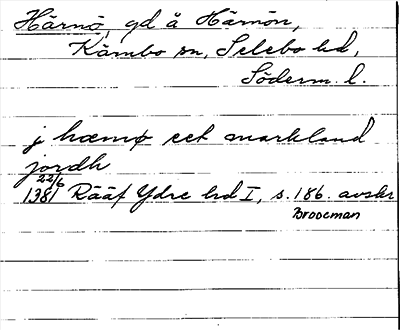 Härnö, gd å Härnön,
Kärnbo sn, Selebo hd,
Söderm. l.
j hærnø eet markland
jordh
22/6
1381 Rääf Ydre hd I, s. 186. avskr
Broocman